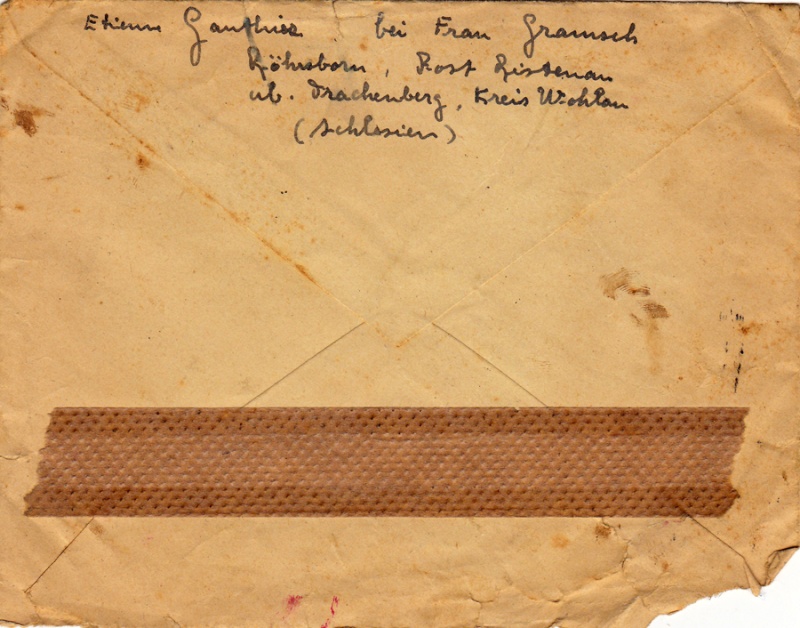 Etienne Gauthier bei Frau Gramsch
Röhrsborn, Post Ristenau
üb. Drachenberg, Kreis Wohlau
(Schlesien)